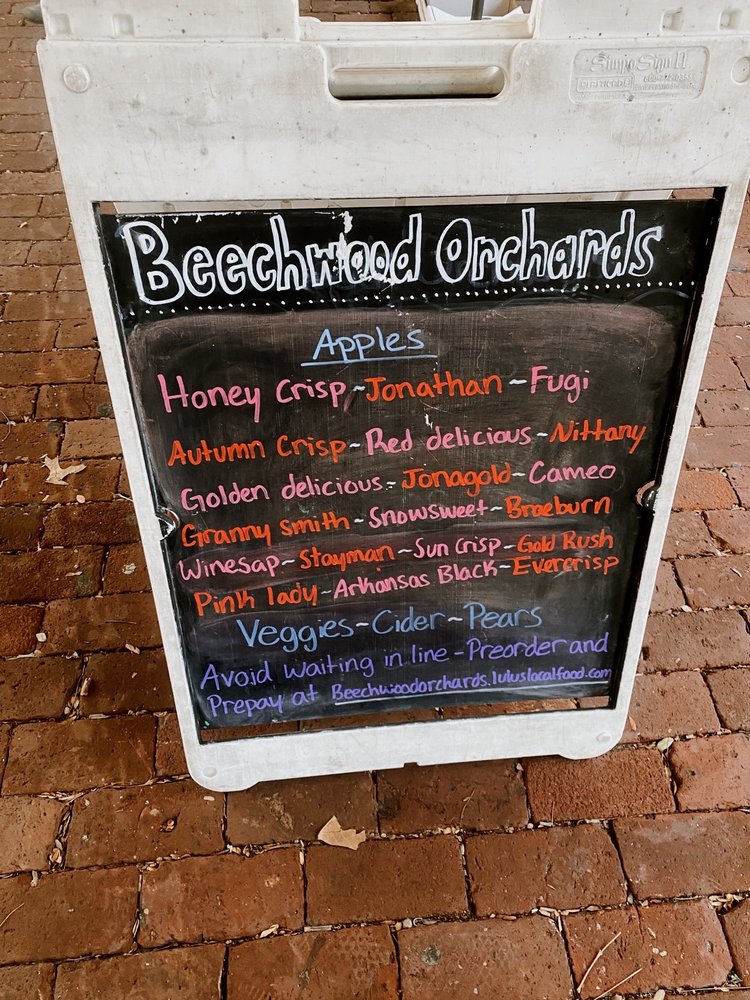 SimpoSign II
Beechwood Orchards
Apples
Honey Crisp ~ Jonathan ~ Fugi
Autumn Crisp ~ Red delicious ~ Nittany
Golden delicious ~ Jonagold ~ Cameo
Granny smith ~ Snowsweet ~ Braeburn
Winesap ~ Stayman ~ Sun Crisp ~ Gold Rush
Pink lady ~ Arkansas Black ~ Evercrisp
Veggies ~ Cider ~ Pears
Avoid waiting in line - Preorder and
Prepay at Beechwoodorchards.luluslocalfood.com